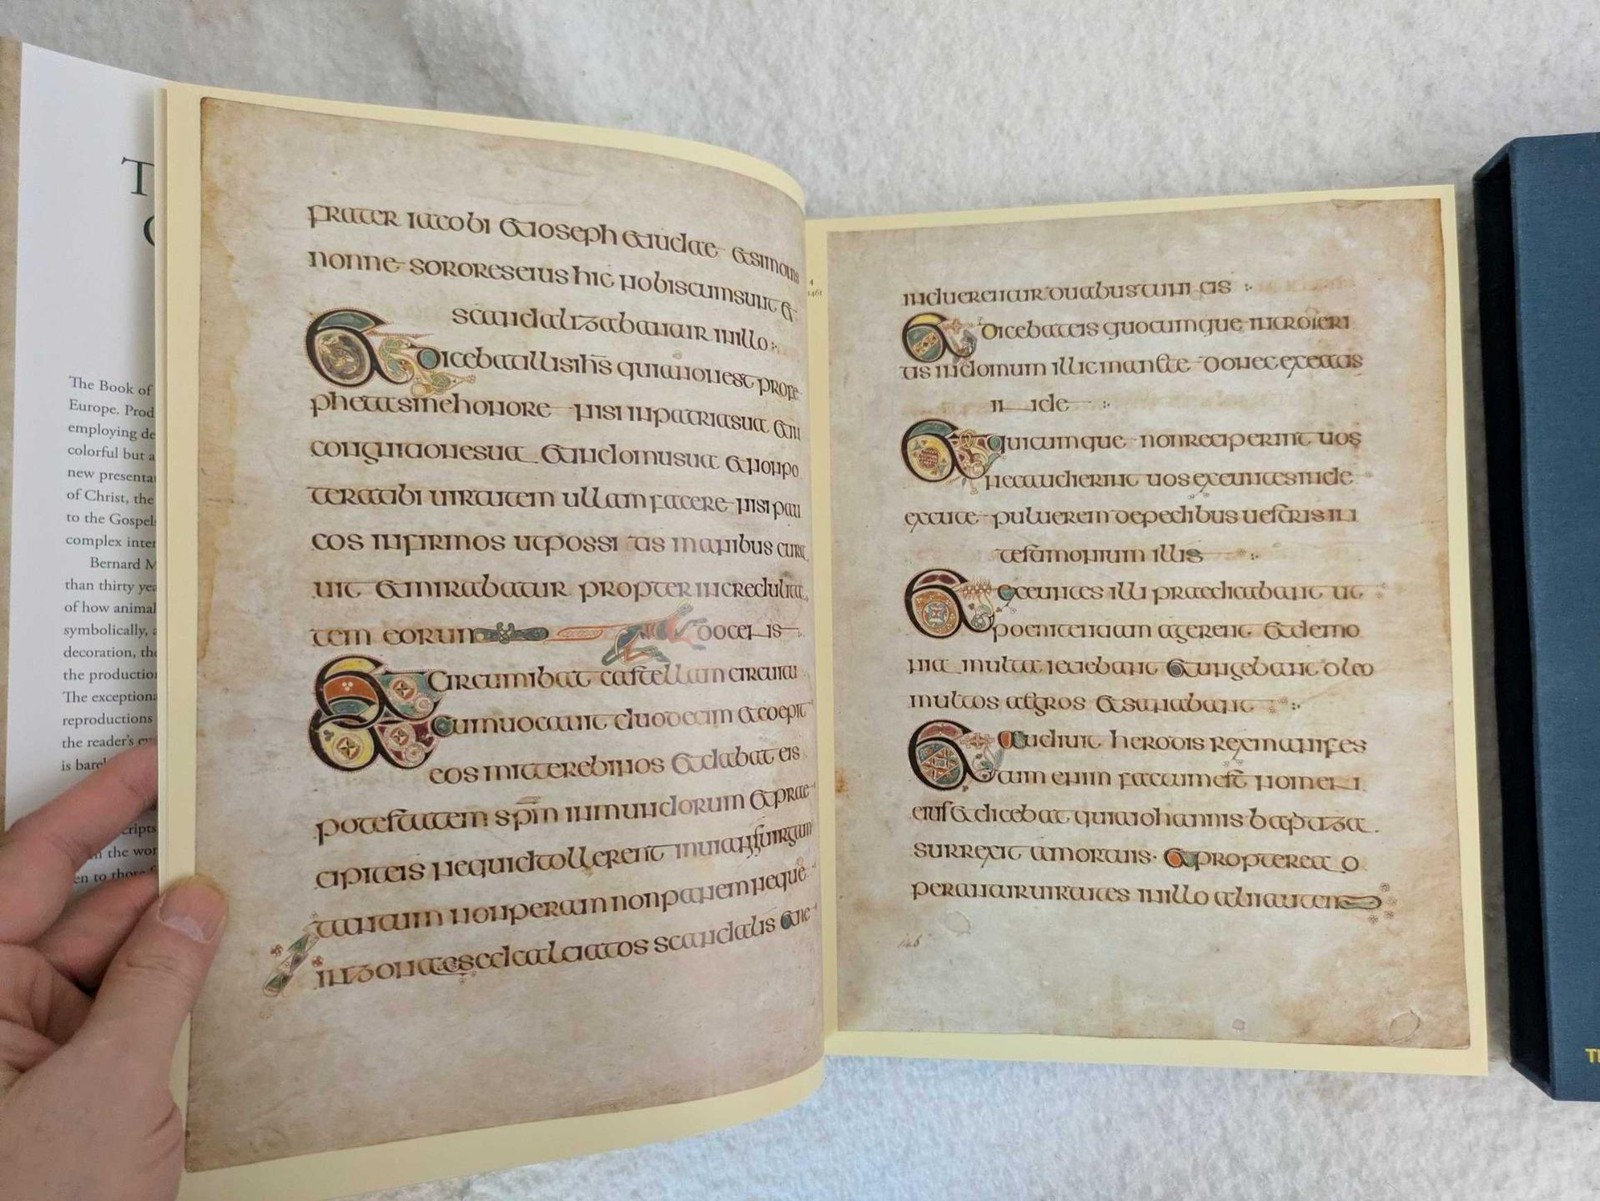 T
The Book of
Europe. Prod
employing de
colorful but a
new presenta
of Christ, the
to the Gospel
complex inter
Bernard M
than thirty yea
of how animal
symbolically, a
decoration, the
the productio
The exceptiona
reproductions
the reader's
is barel
cripts
the wor
en to those
frater iacobi et ioseph et iudae et simonis
nonne sorores eius hic nobiscum sunt et
scandalizabantur in illo
Et dicebat illis ihs quia non est prope
pheta sine honore nisi in patria sua et in
cognatione sua et in domu sua et non po
terat ibi uirtutem ullam facere nisi pau
cos infirmos inpossitis manibus cura
uit et mirabatur propter incredulita
tem eorum docens
Et circumibat castellam circum
Et conuocauit duodecim et coepit
eos mittere binos et dabat eis
potestatem spm inmundorum et prae
cipit eis nequid tollerent in uia nisi uirgam
tantum non peram non panem neque
in zona aes sed calciatos scandalis et ne
induerentur duabus tunicis
Et dicebat eis quocumque introieri
tis in domum illic manete donec exeatis
inde
Et quicumque non receperint uos
nec audierint uos exeuntes inde
excutite puluerem de pedibus uestris in
testimonium illis
Et exeuntes illi praedicabant ut
poenitentiam agerent et demo
nia multa iciebant et ungebant oleo
multos aegros et sanabant
Et audiuit herodis rex manifes
tum enim factum est nomen
eius et dicebat quia iohannis baptiza
surrexit a mortuis et propterea o
perantur uirtutes in illo alii autem